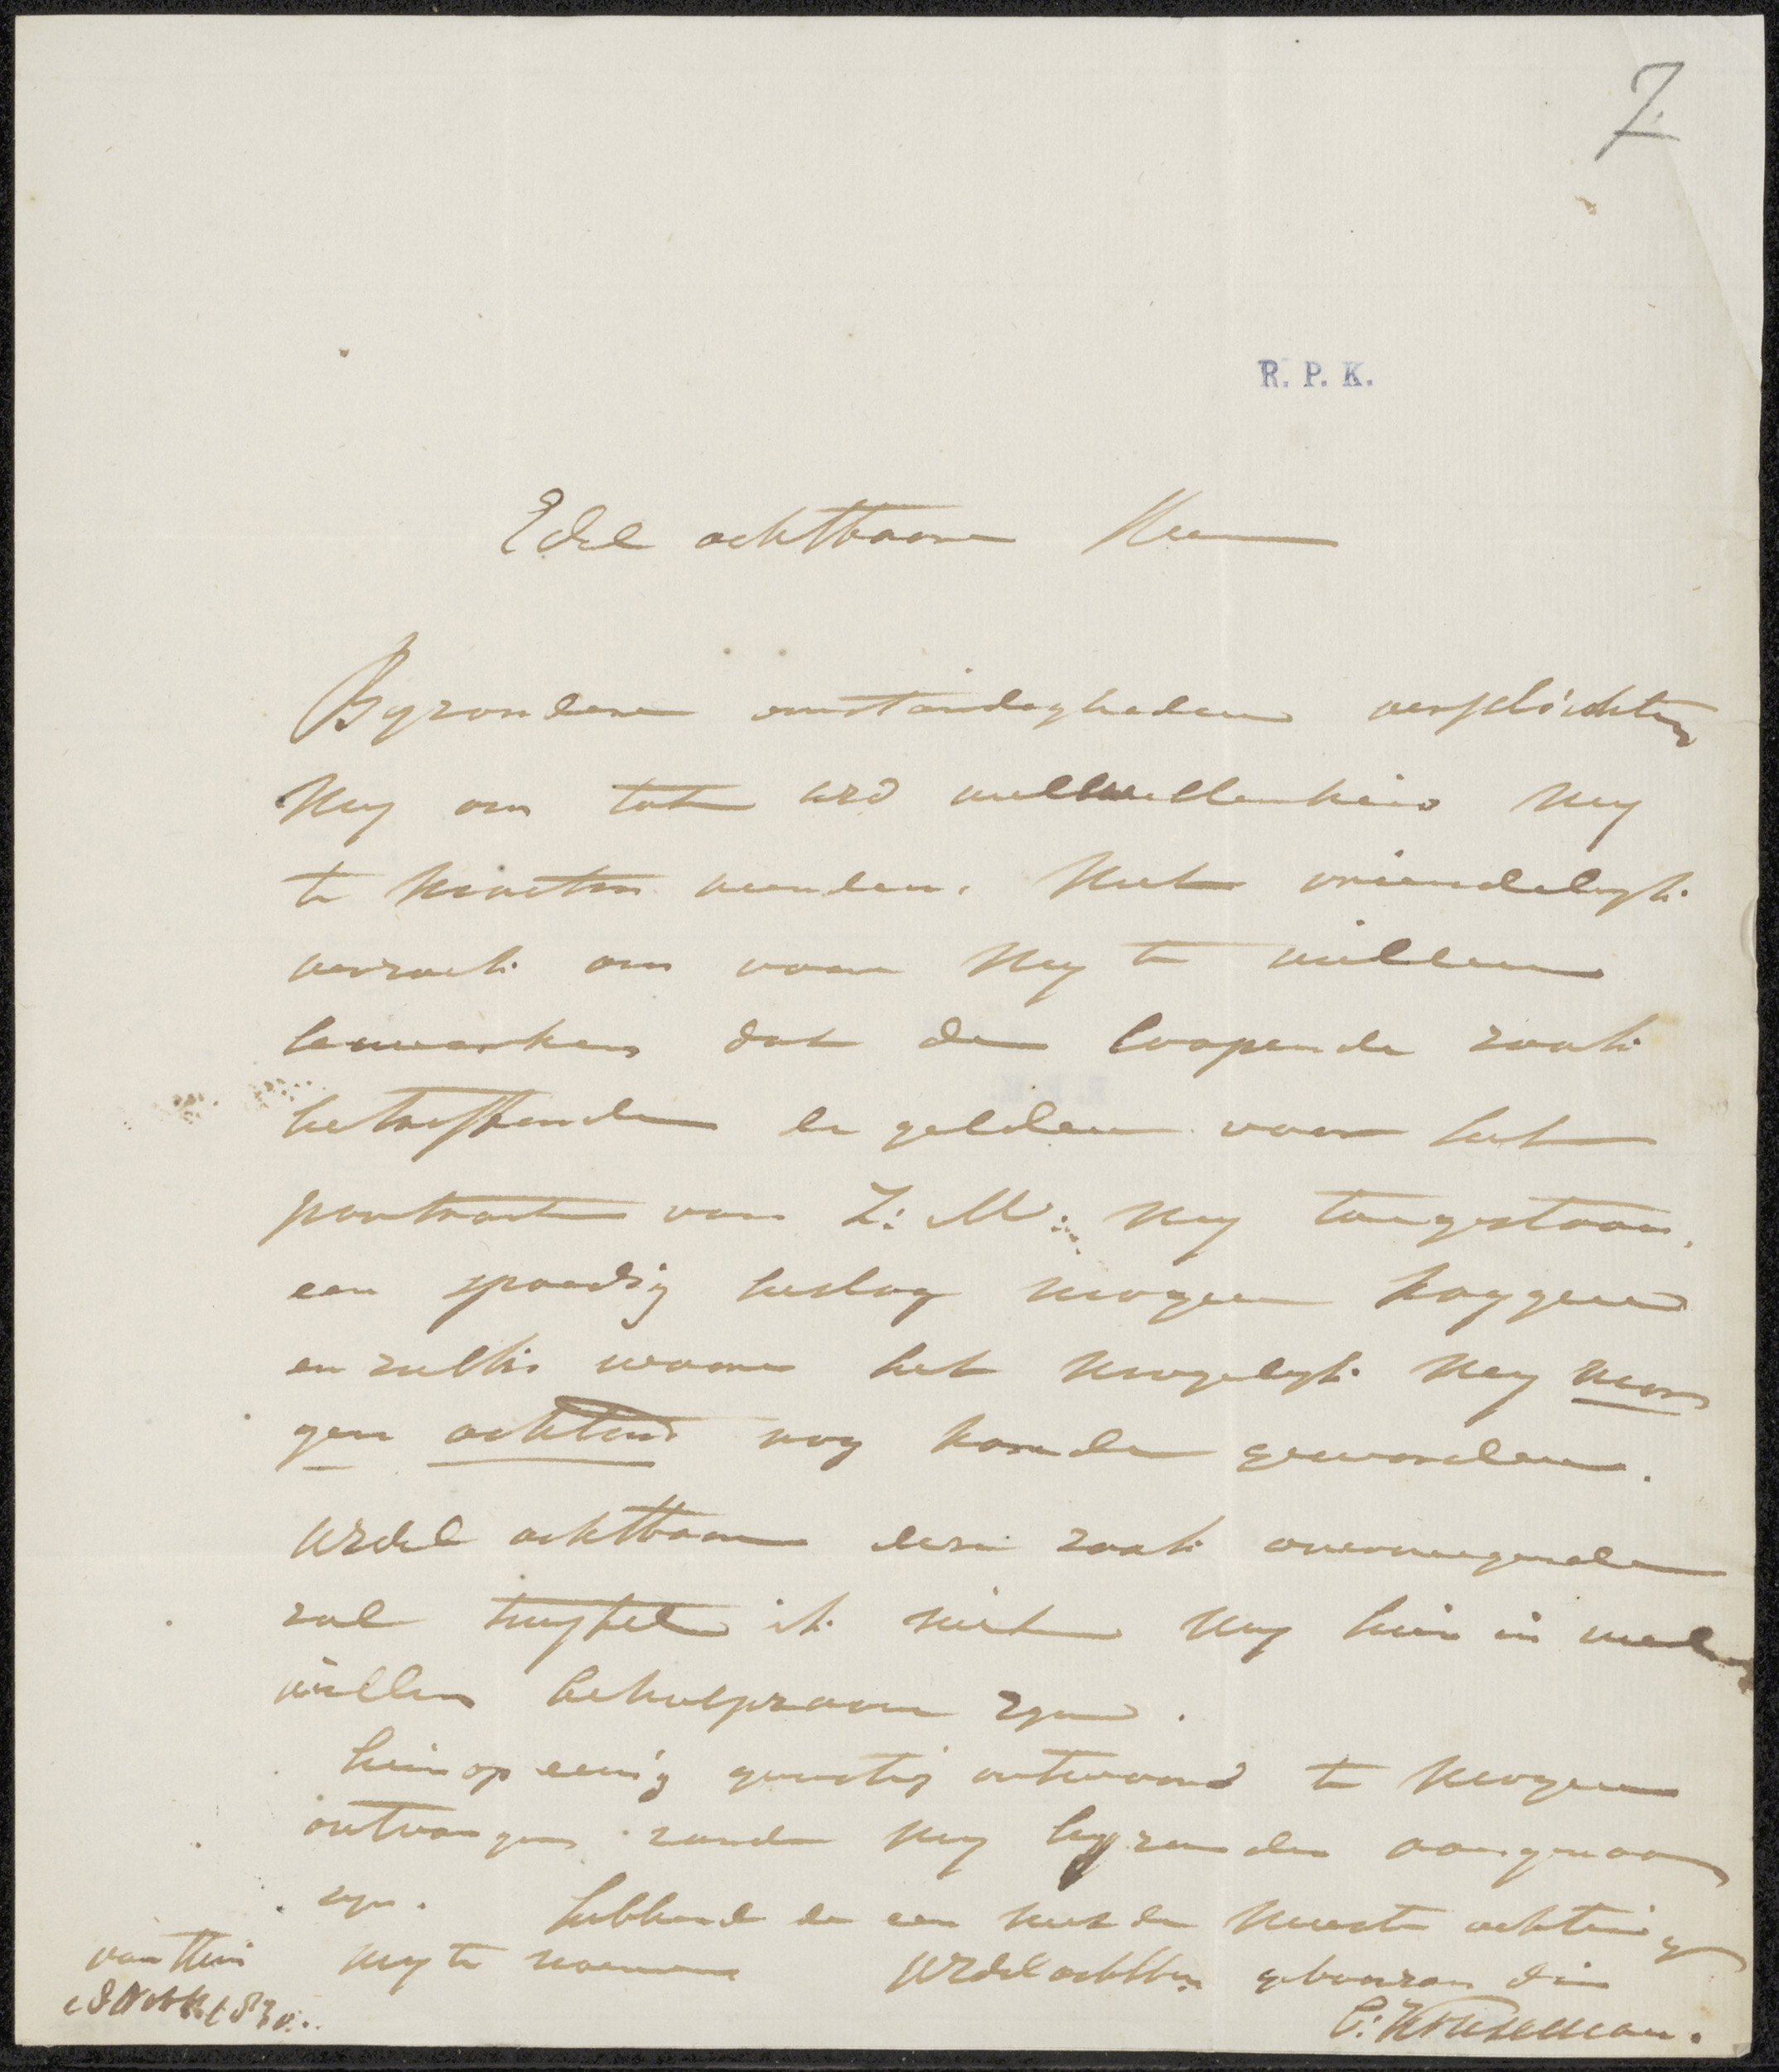 7
R. P. K.
Edel achtbaare Heer
Byzondere omstandigheden verplichten
my om tot UEd welwillenheid my
te moeten wenden. Met vriendelyk
verzoek om voor my te willen
bewerken dat de loopende zaak
betreffende de gelden voor het
portrait van Z: M: my toegestaan,
een spoedig beslag mogen krygen
en zulks waare het mogelyk my mor
gen achtend nog konde geworden.
UEdel achtbaare deze zaak overwegende
zal twyfel ik niet my hier in wel
willen behulpzaam zyn.
hier op eenig gunstig antwoord te mogen
ontvangen zoude my byzonder aangenaam
zyn. hebbende de eer met de meeste achting
van Uwe my te noemen UEdelachtb: gehoorzame din
18 1830.
C: Kruseman.